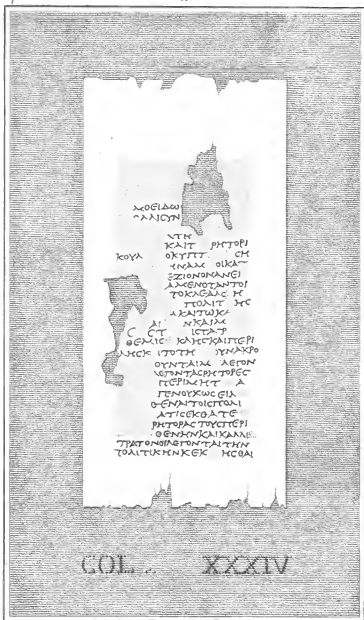 ΛΛΙCΥΝ
ΝΤΗ
ΚΑΙΤ ΡΗΤΟΡΙ
ΚΟΥΛ ΟΚΥΠΤ CΗ
ΗΝΑΜ ΟΙΚΑΤ
ΞΞΙΟΝΟΝΑΝΕΙ
ΑΜΕΝΟΤΑΝΤΟΙ
ΤΟΚΛΕΑΛC Η
ΠΟΛΙΤ ΗC
ΑΚΑΙΤΩΚΑ
ΑΙ ΝΚΑΙΜ
C CΤ ΙCΤΑΡ
ΘΕΜΙC ΚΛΗCΚΑΙΠΕΡΙ
ΛΗCΚ ΙΤΟΤΗ ΥΝΑΚΡΟ
ΟΥΝΤΑΙΜ ΛΕΓΟΝ
ΛΕΓΟΝΤΑCΡΗΤΟΡΕC
ΠΕΡΙΜΗΤ Α
ΓΕΝΟΥΧΩCΕΙΛ
ΘΕΝΑΙΤΟΙCΠΟΛΙ
ΑΤΙCΕΚΘΑΤΕ
ΡΗΤΟΡΑCΤΟΥCΠΕΡΙ
ΘΕΝΗΝΚΑΙΚΑΛΛΙ
ΤΡΑΤΟΝΟΙΛΕΓΟΝΤΑΙΤΗΝ
ΤΟΛΙΤΙΚΗΝΚΕΚ ΗCΘΑΙ
COL. XXXIV